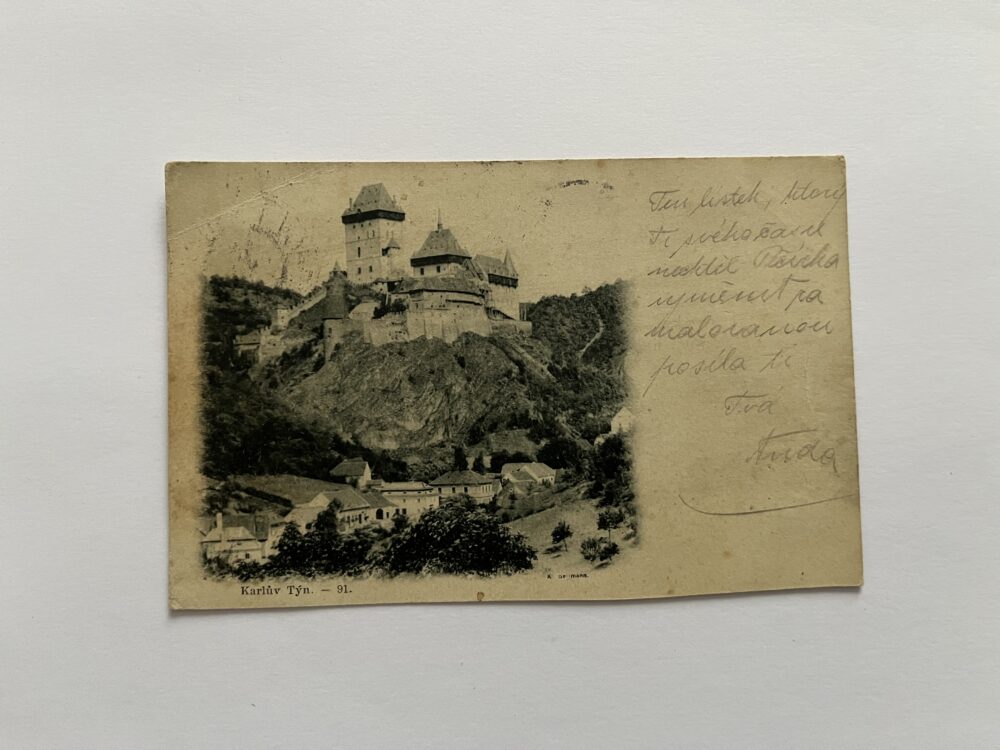 Ten lístek, který
Ti svého času
nedděl
vyměnit za
malovanou
posílá ti
Tvá
Karlův Týn. — 91.